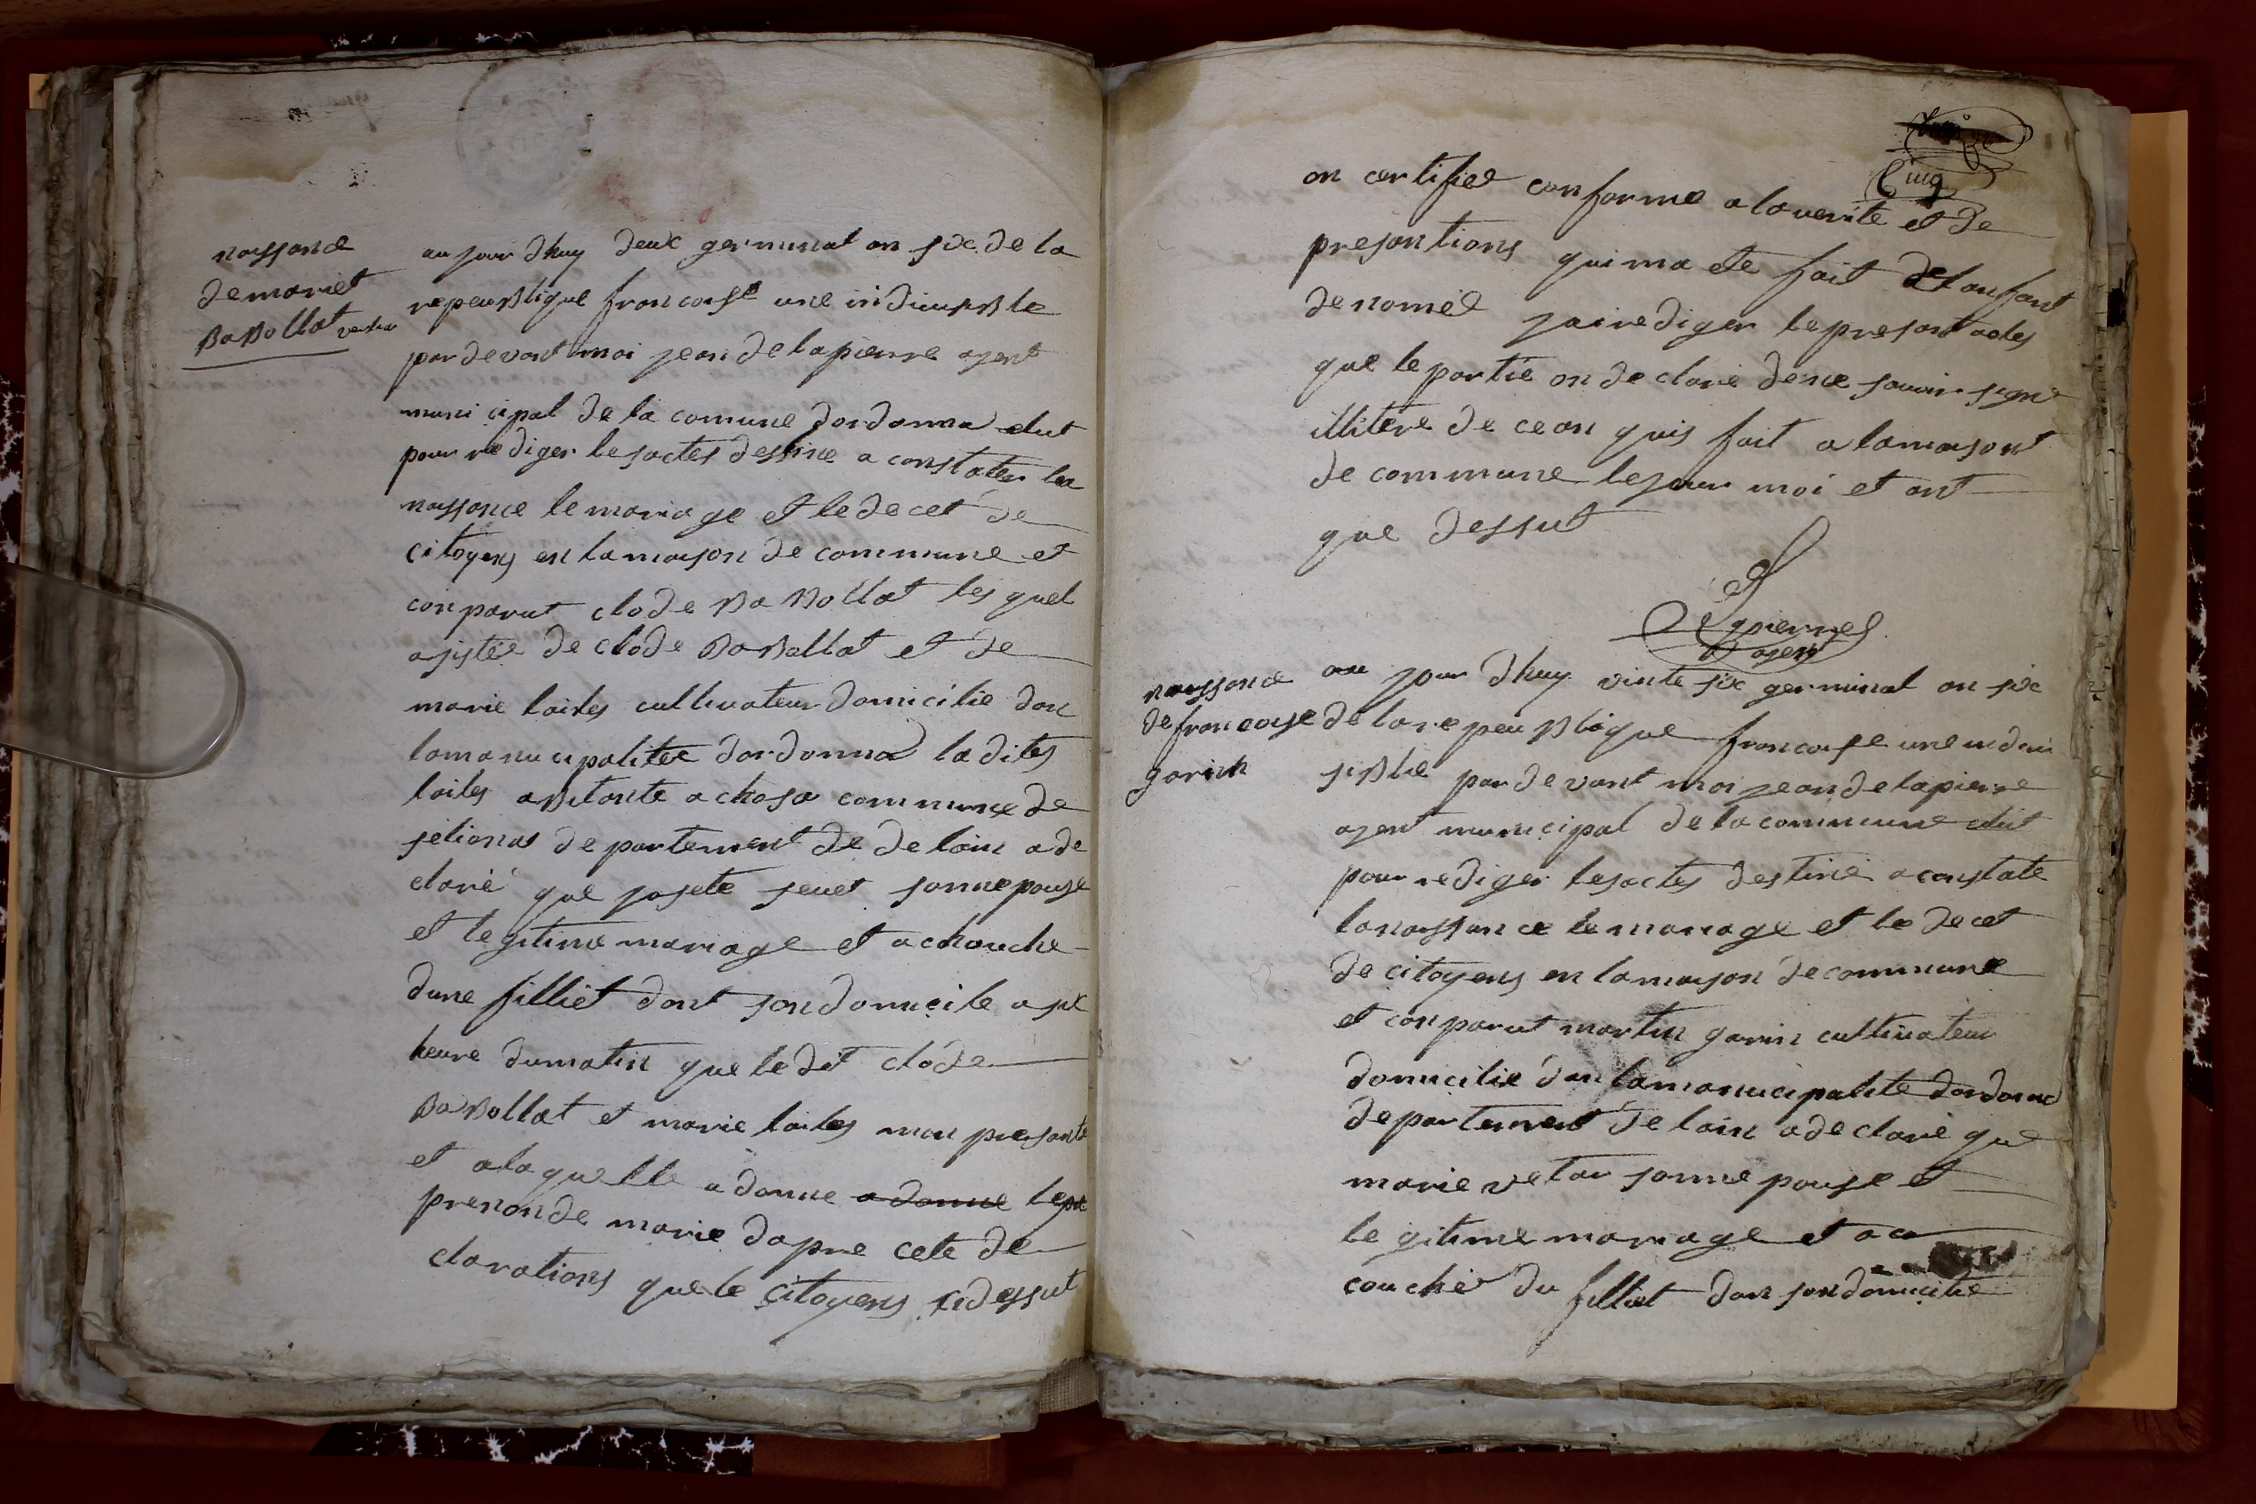 naissance
de mariet
Babollat
au jour dhuy deux germinal an six de la
repeublique francoise une indiuisible
par devant moi jean delapierre agent
municipal de la comune dordonna elut
pour rediger les actes destine a constater la
naissance le mariage et le decet de
citoyens en la maison de commune et
conparut clode Babollat les quel
asistée de clode Baballat et de
marie laites cultivateur domicilie dan
la manucipalitee dordonna la dites
laites abitante a chosa commune de
selionas departement de de lain a de
claré que josete seuet sonne pouse
et legitime mariage et achouche
dune filliet dont son domicile a six
heure du matin que le dit clode
Babollat et marie laites mon presanté
et a laquelle a donne a donne le pre
prenon de marie dapre cete de
clarations que le citoyens cidessut
Cinq
on certifiee conforme a la verite et de
presantions qui ma ete fait de lanfant
denomée jai rediger le present actes
que le partie on de claré de ne savoir signe
illitere de ce an quis fait a la maisont
de commune le jour moi et ant
que dessut
Delapierre
agent
naissance
de francoise
garin
au jour dhuy vinte six germinal an six
de la repeublique francoise une indiui
sible par devant moi jean delapierre
agent municipal de la commune elut
pour rediger les actes destiné a constate
la naissance le mariage et le decet
de citoyens en la maison de commune
et conparut martin garin cultivateur
domicilie dan la manucipalite dordonna
departement de lain a declaré que
marie vetar sonne pouse et
legitime mariage et a ca
couché du filliet dan son domicilie